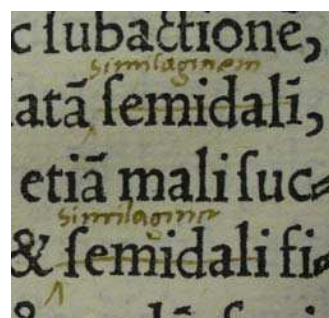 c ſubactione,
similaginem
atã ſemidalĩ,
etiã mali ſuc⸗
similagine
& ſemidali fi⸗